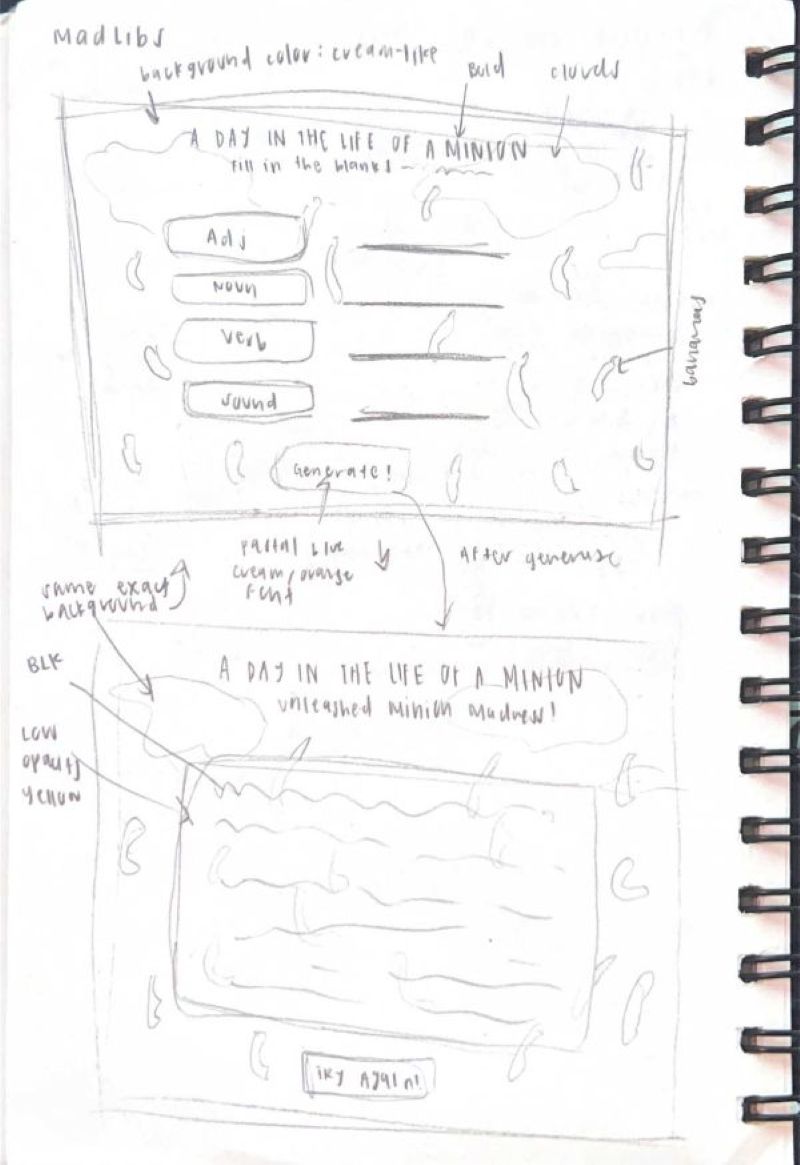 MadLibs
background color: cream-like
Bold
clouds
A DAY IN THE LIFE OF A MINION
fill in the blanks
Adj
Noun
Verb
sound
bananas
Generate!
pastal blue
cream/orange
font
After generate
same exact
background
BLK
LOW
opacity
yellow
A DAY IN THE LIFE OF A MINION
unleashed minion madness!
TRY AGAIN!